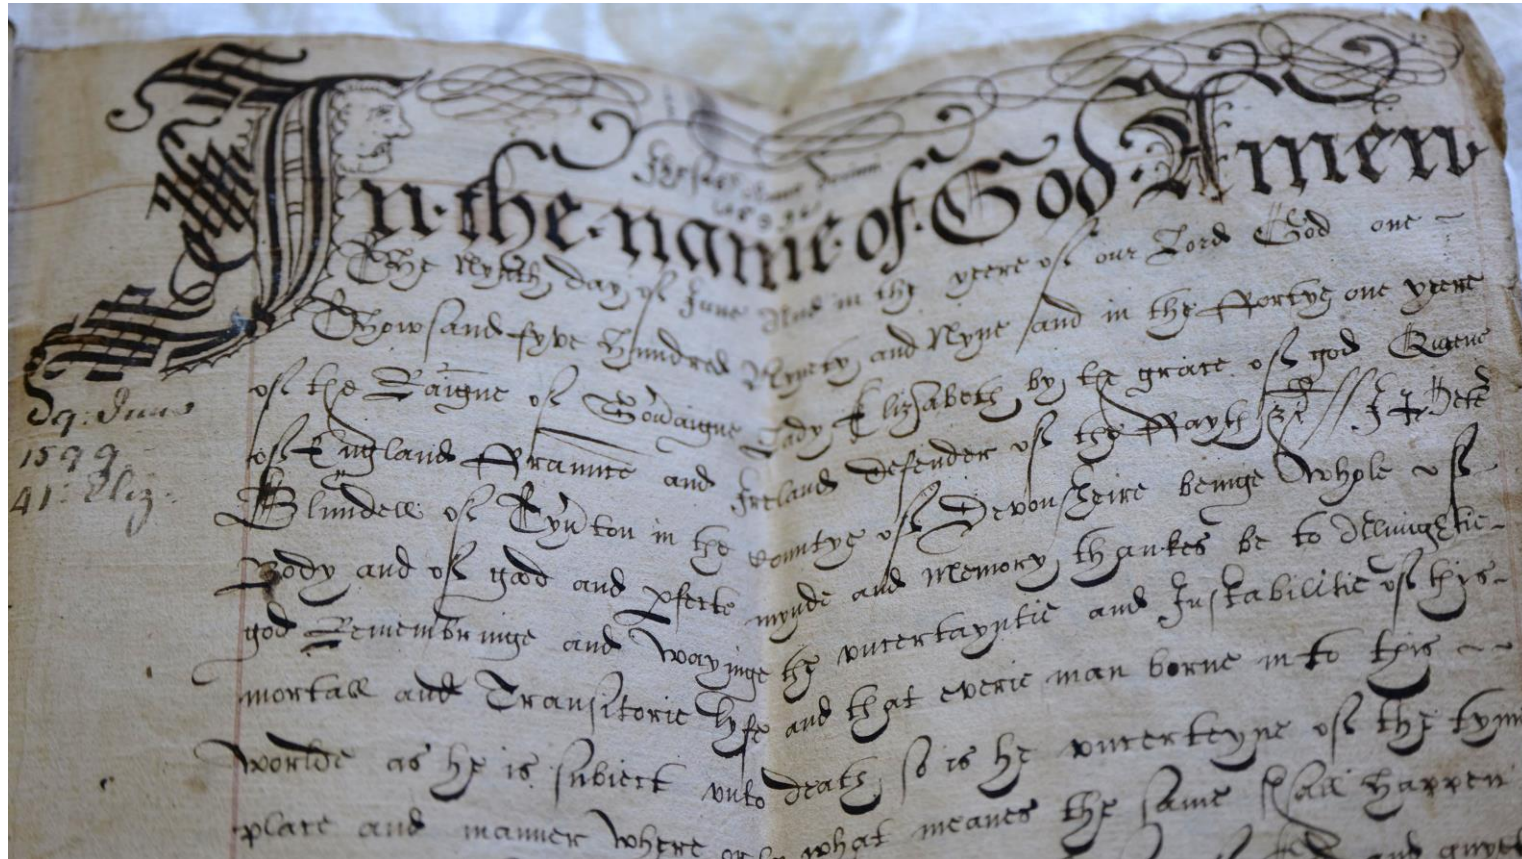 In·the·name·of·God·Amen
The Nynth day of June And in the yeere of our Lord God one
Thowsand fyve Hundred Nynety and Nyne and in the ffortye one yeere
of the Raigne of Lady Elizabeth by the grace of god Queene
of England ffraunce and Ireland defender of the ffayth I Peter
Blundell of Tyv̄ton in the countye of Devonsheire beinge whole of
Body and of good and pfecte mynde and memory thankes be to
god Remembringe and wayinge the uncertayntie and Instabilitie of this
mortall and Transitorie lyfe and that everie man borne into this
worlde as he is subiect unto death so is he uncerteyne of the tyme
place and manner where what meanes the same shall happen
9: June
1599
41: Eliz.